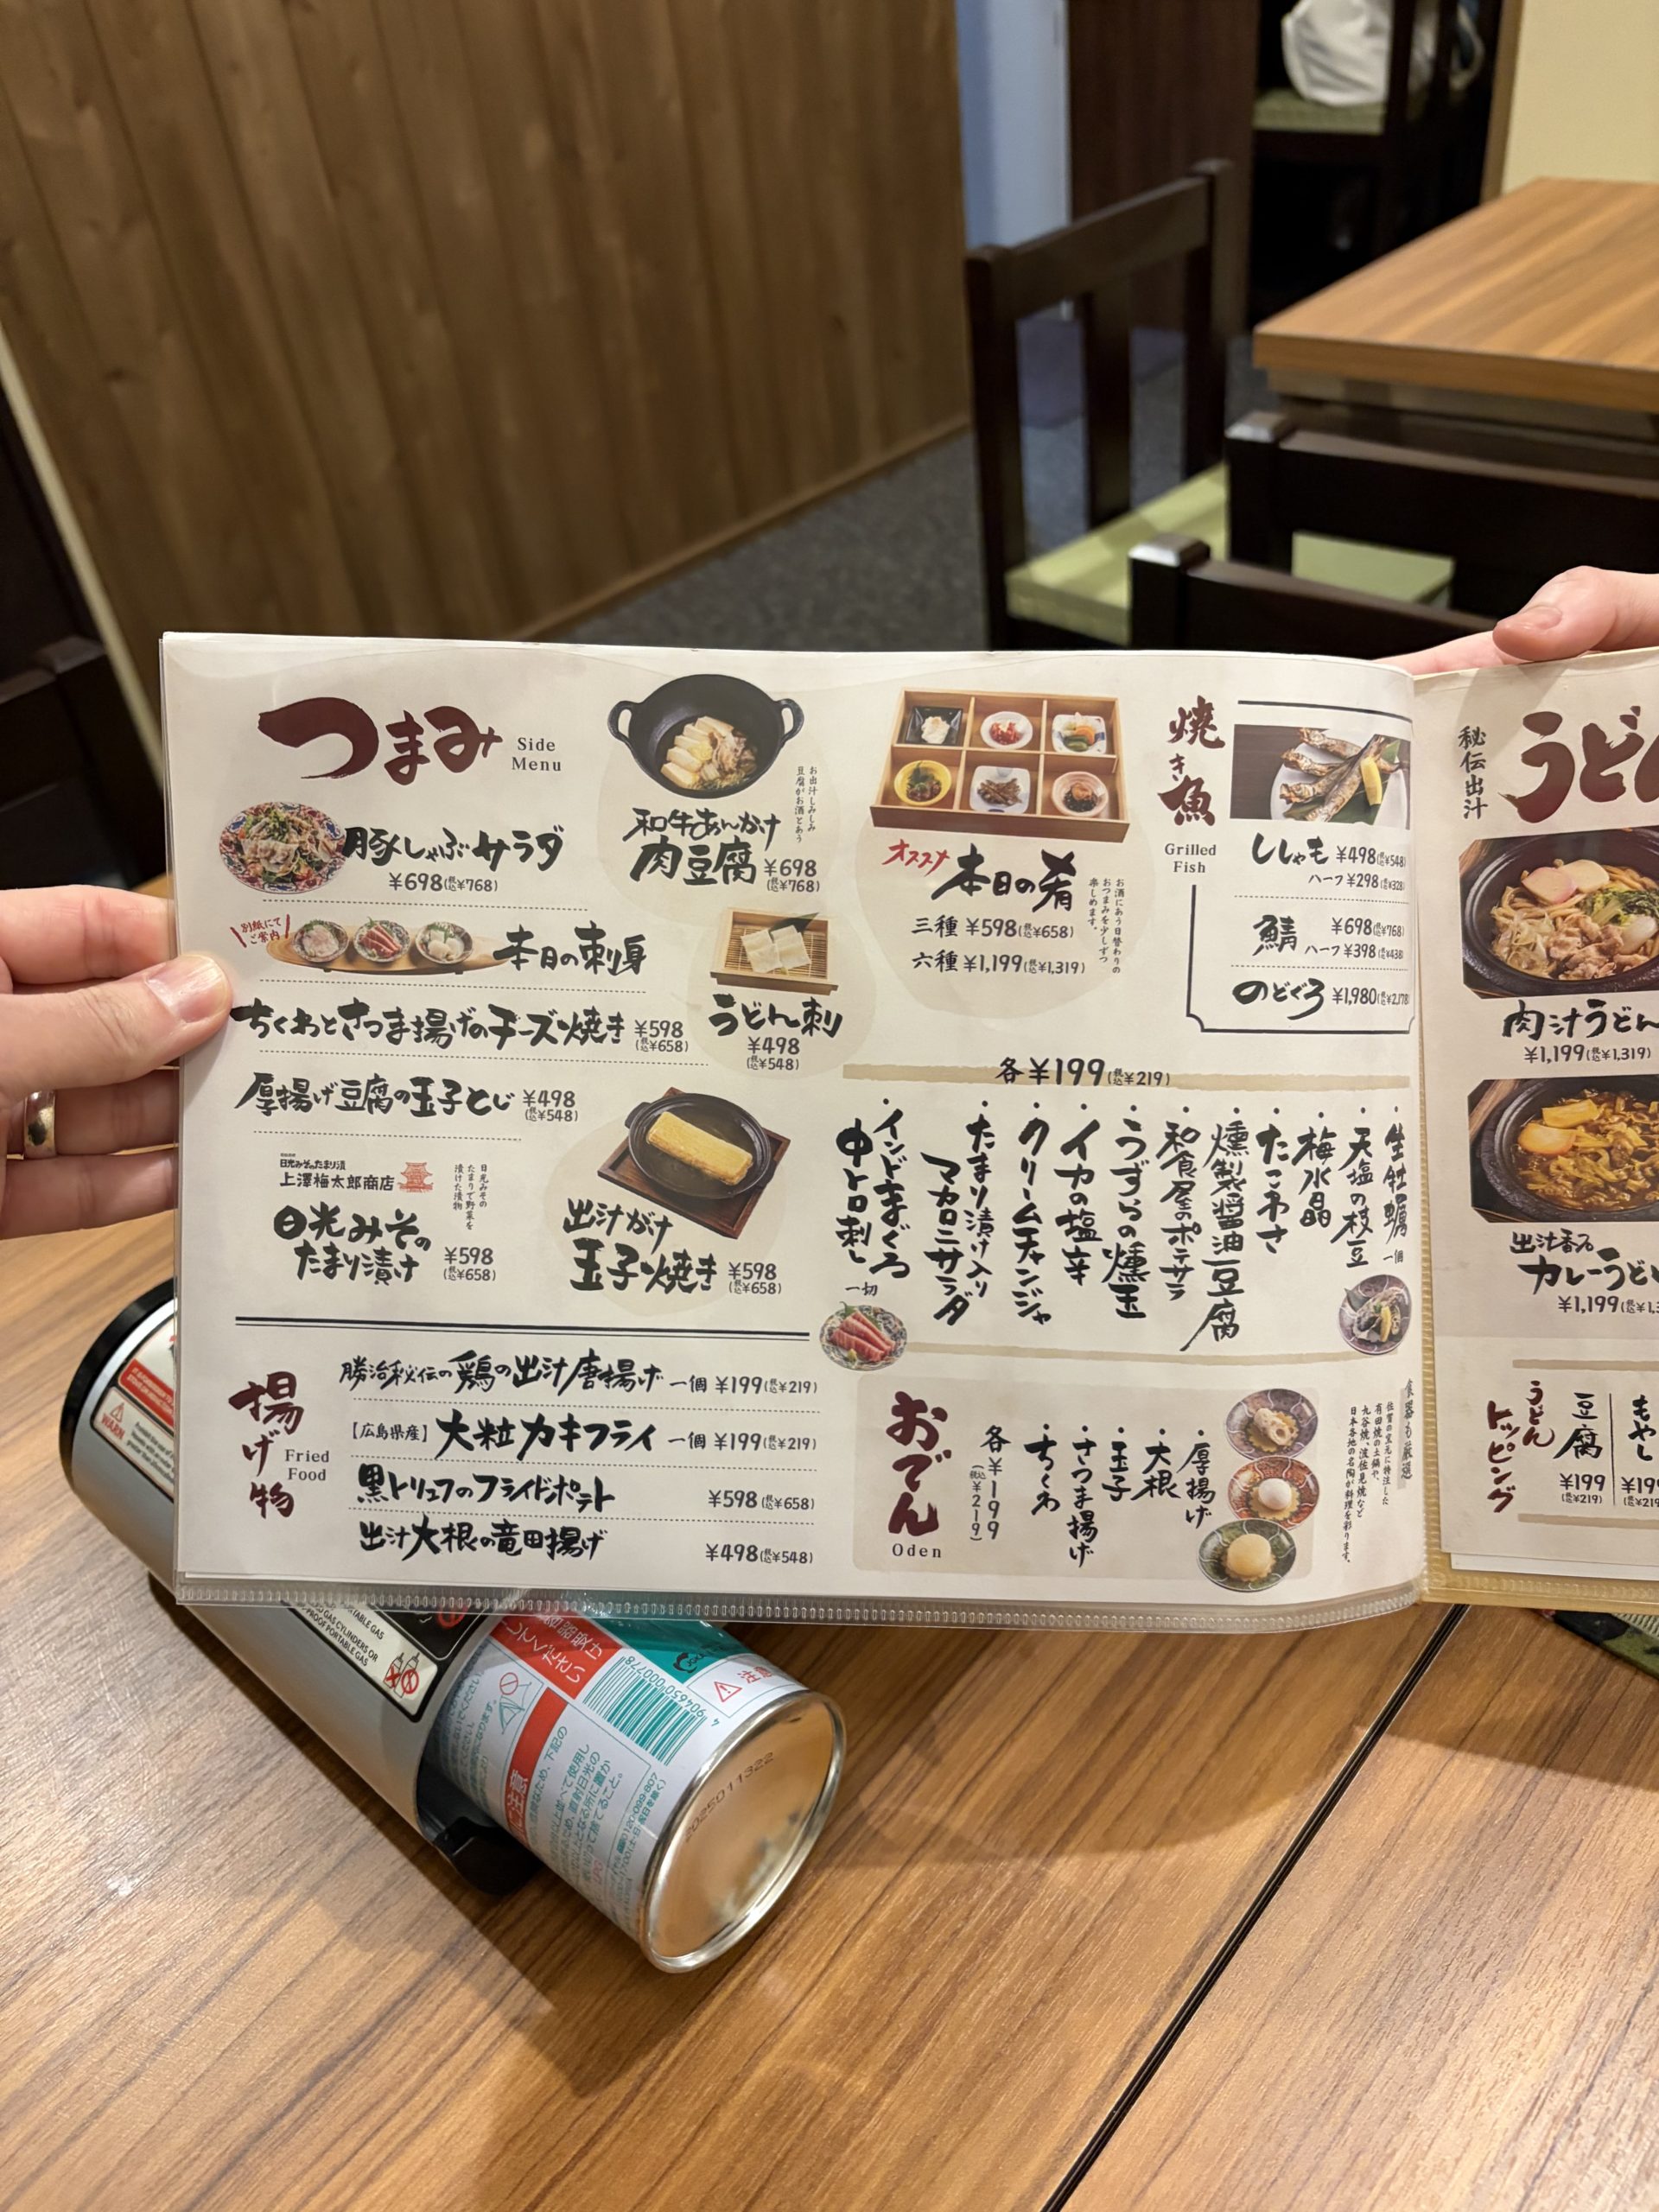 つまみ
Side
Menu
豚しゃぶサラダ
¥698(税込¥768)
和牛あんかけ
肉豆腐 ¥698
(税込¥768)
お出汁しみしみ
豆腐がお酒とあう
別紙にて
ご案内
本日の刺身
うどん刺
¥498
(税込¥548)
ちくわとさつま揚げのチーズ焼き ¥598
(税込¥658)
厚揚げ豆腐の玉子とじ ¥498
(税込¥548)
日光みそのたまり漬
上澤梅太郎商店
日光みその
たまりで野菜を
漬けた漬物
日光みその
たまり漬け ¥598
(税込¥658)
出汁がけ
玉子焼き ¥598
(税込¥658)
揚げ物
Fried
Food
勝治秘伝の鶏の出汁唐揚げ 一個 ¥199(税込¥219)
【広島県産】大粒カキフライ 一個 ¥199(税込¥219)
黒トリュフのフライドポテト ¥598(税込¥658)
出汁大根の竜田揚げ ¥498(税込¥548)
オススメ 本日の肴
三種 ¥598(税込¥658)
六種 ¥1,199(税込¥1,319)
お酒にあう日替わりの
おつまみを少しずつ
楽しめます。
焼き魚
Grilled
Fish
ししゃも ¥498(税込¥548)
ハーフ ¥298(税込¥328)
鯖 ¥698(税込¥768)
ハーフ ¥398(税込¥438)
のどぐろ ¥1,980(税込¥2,178)
各¥199(税込¥219)
・生牡蠣 一個
・天塩の枝豆
・梅水晶
・たこわさ
・燻製醤油豆腐
・和食屋のポテサラ
・うずらの燻玉
・イカの塩辛
・クリームチャンジャ
・たまり漬け入り
マカロニサラダ
・インドまぐろ
中トロ刺し 一切
おでん
Oden
各¥199
(税込¥219)
・厚揚げ
・大根
・玉子
・さつま揚げ
・ちくわ
食器も厳選
佐賀の窯元に特注した
有田焼の土鍋や、
九谷焼、波佐見焼など
日本各地の名陶が料理を彩ります。
秘伝出汁
うどん
肉汁うどん
¥1,199(税込¥1,319)
出汁香る
カレーうど
¥1,199(税込¥1,3
うどん
トッピング
豆腐
¥199
(税込¥219)
もやし
¥199
(税込¥219
TABLE GAS
GAS CYLINDERS OR
PROOF PORTABLE GAS
WARN
してください
注意
4 904650 000778
20250113 22